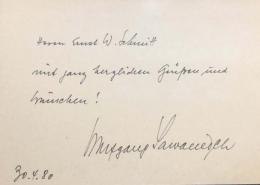 Herrn Ernst W. Schmitt
mit ganz herzlichen Grüßen und
Wünschen!
Wolfgang Sawallisch
30.4.80